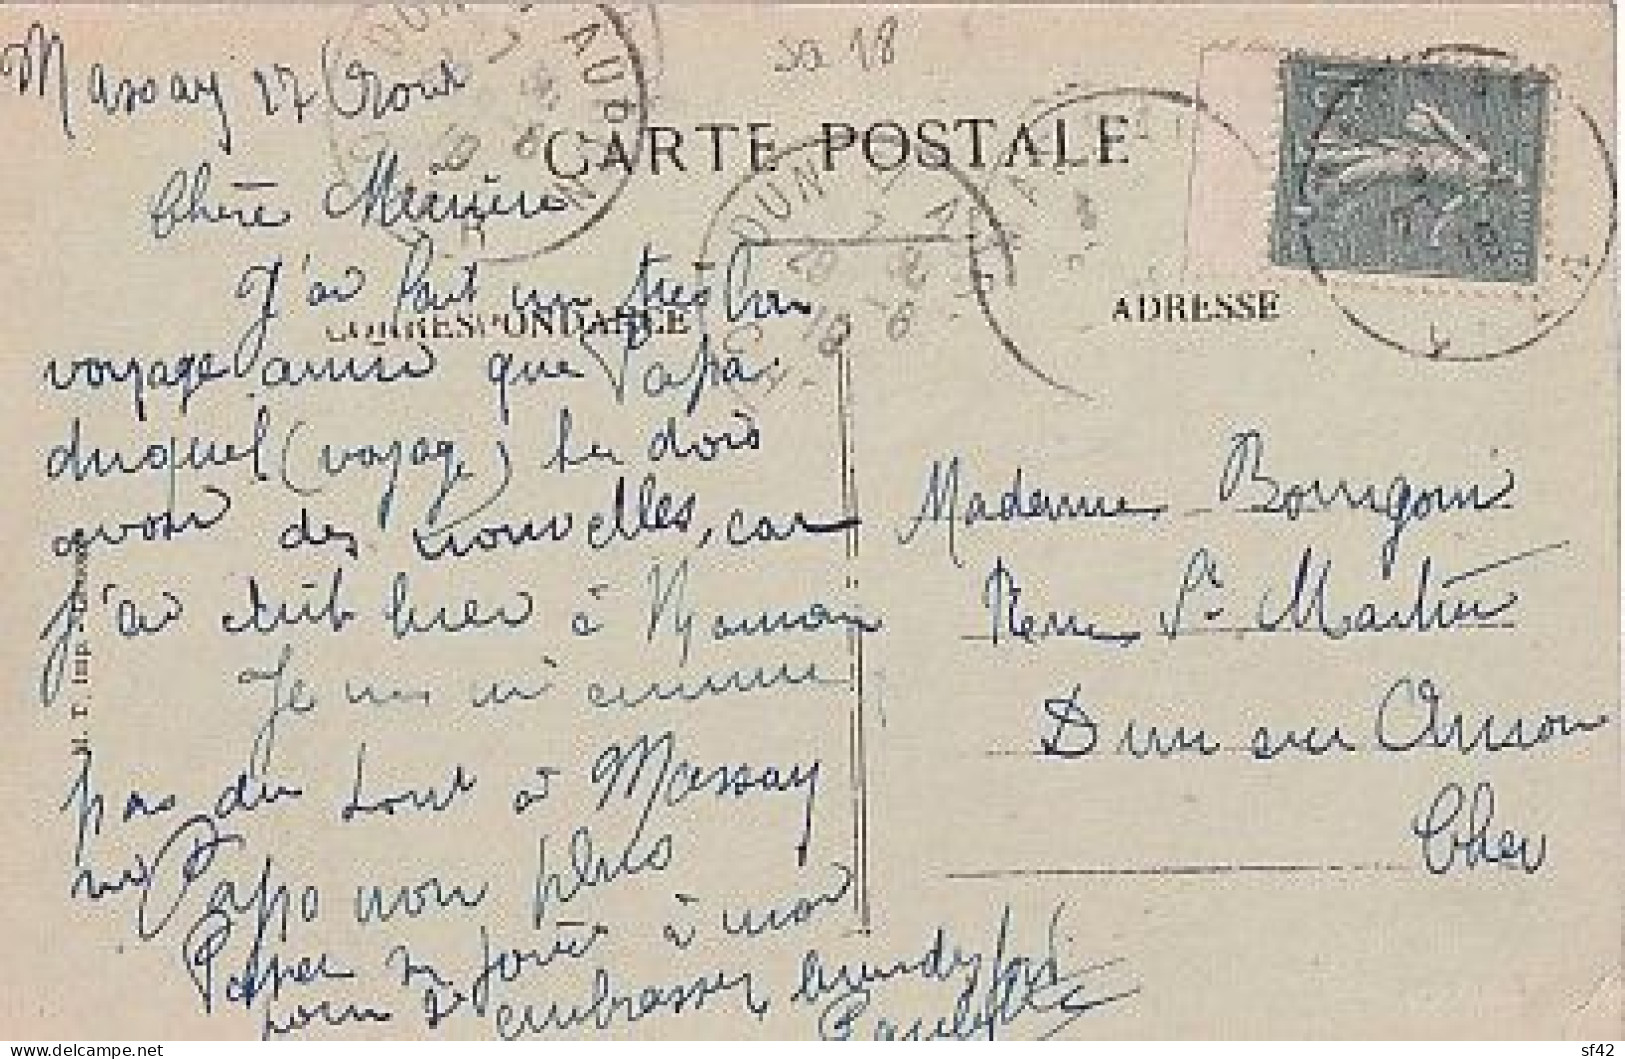 Massay 27 Aout
Ja 18
CARTE POSTALE
Chère
J'ai fait un très bon
CORRESPONDANCE
ADRESSE
voyage ainsi que Papa
duquel (voyage) tu dois
avoir des nouvelles, car
j'ai écrit hier à Maman
Je ne m'ennuie
pas du tout à Massay
ni Papa non plus
à moi
pour t'embrasser
Paulette
Madame Bourgoin
Rue St Martin
Dun sur Auron
Cher
DUN
AUR
delcampe.net
sf42